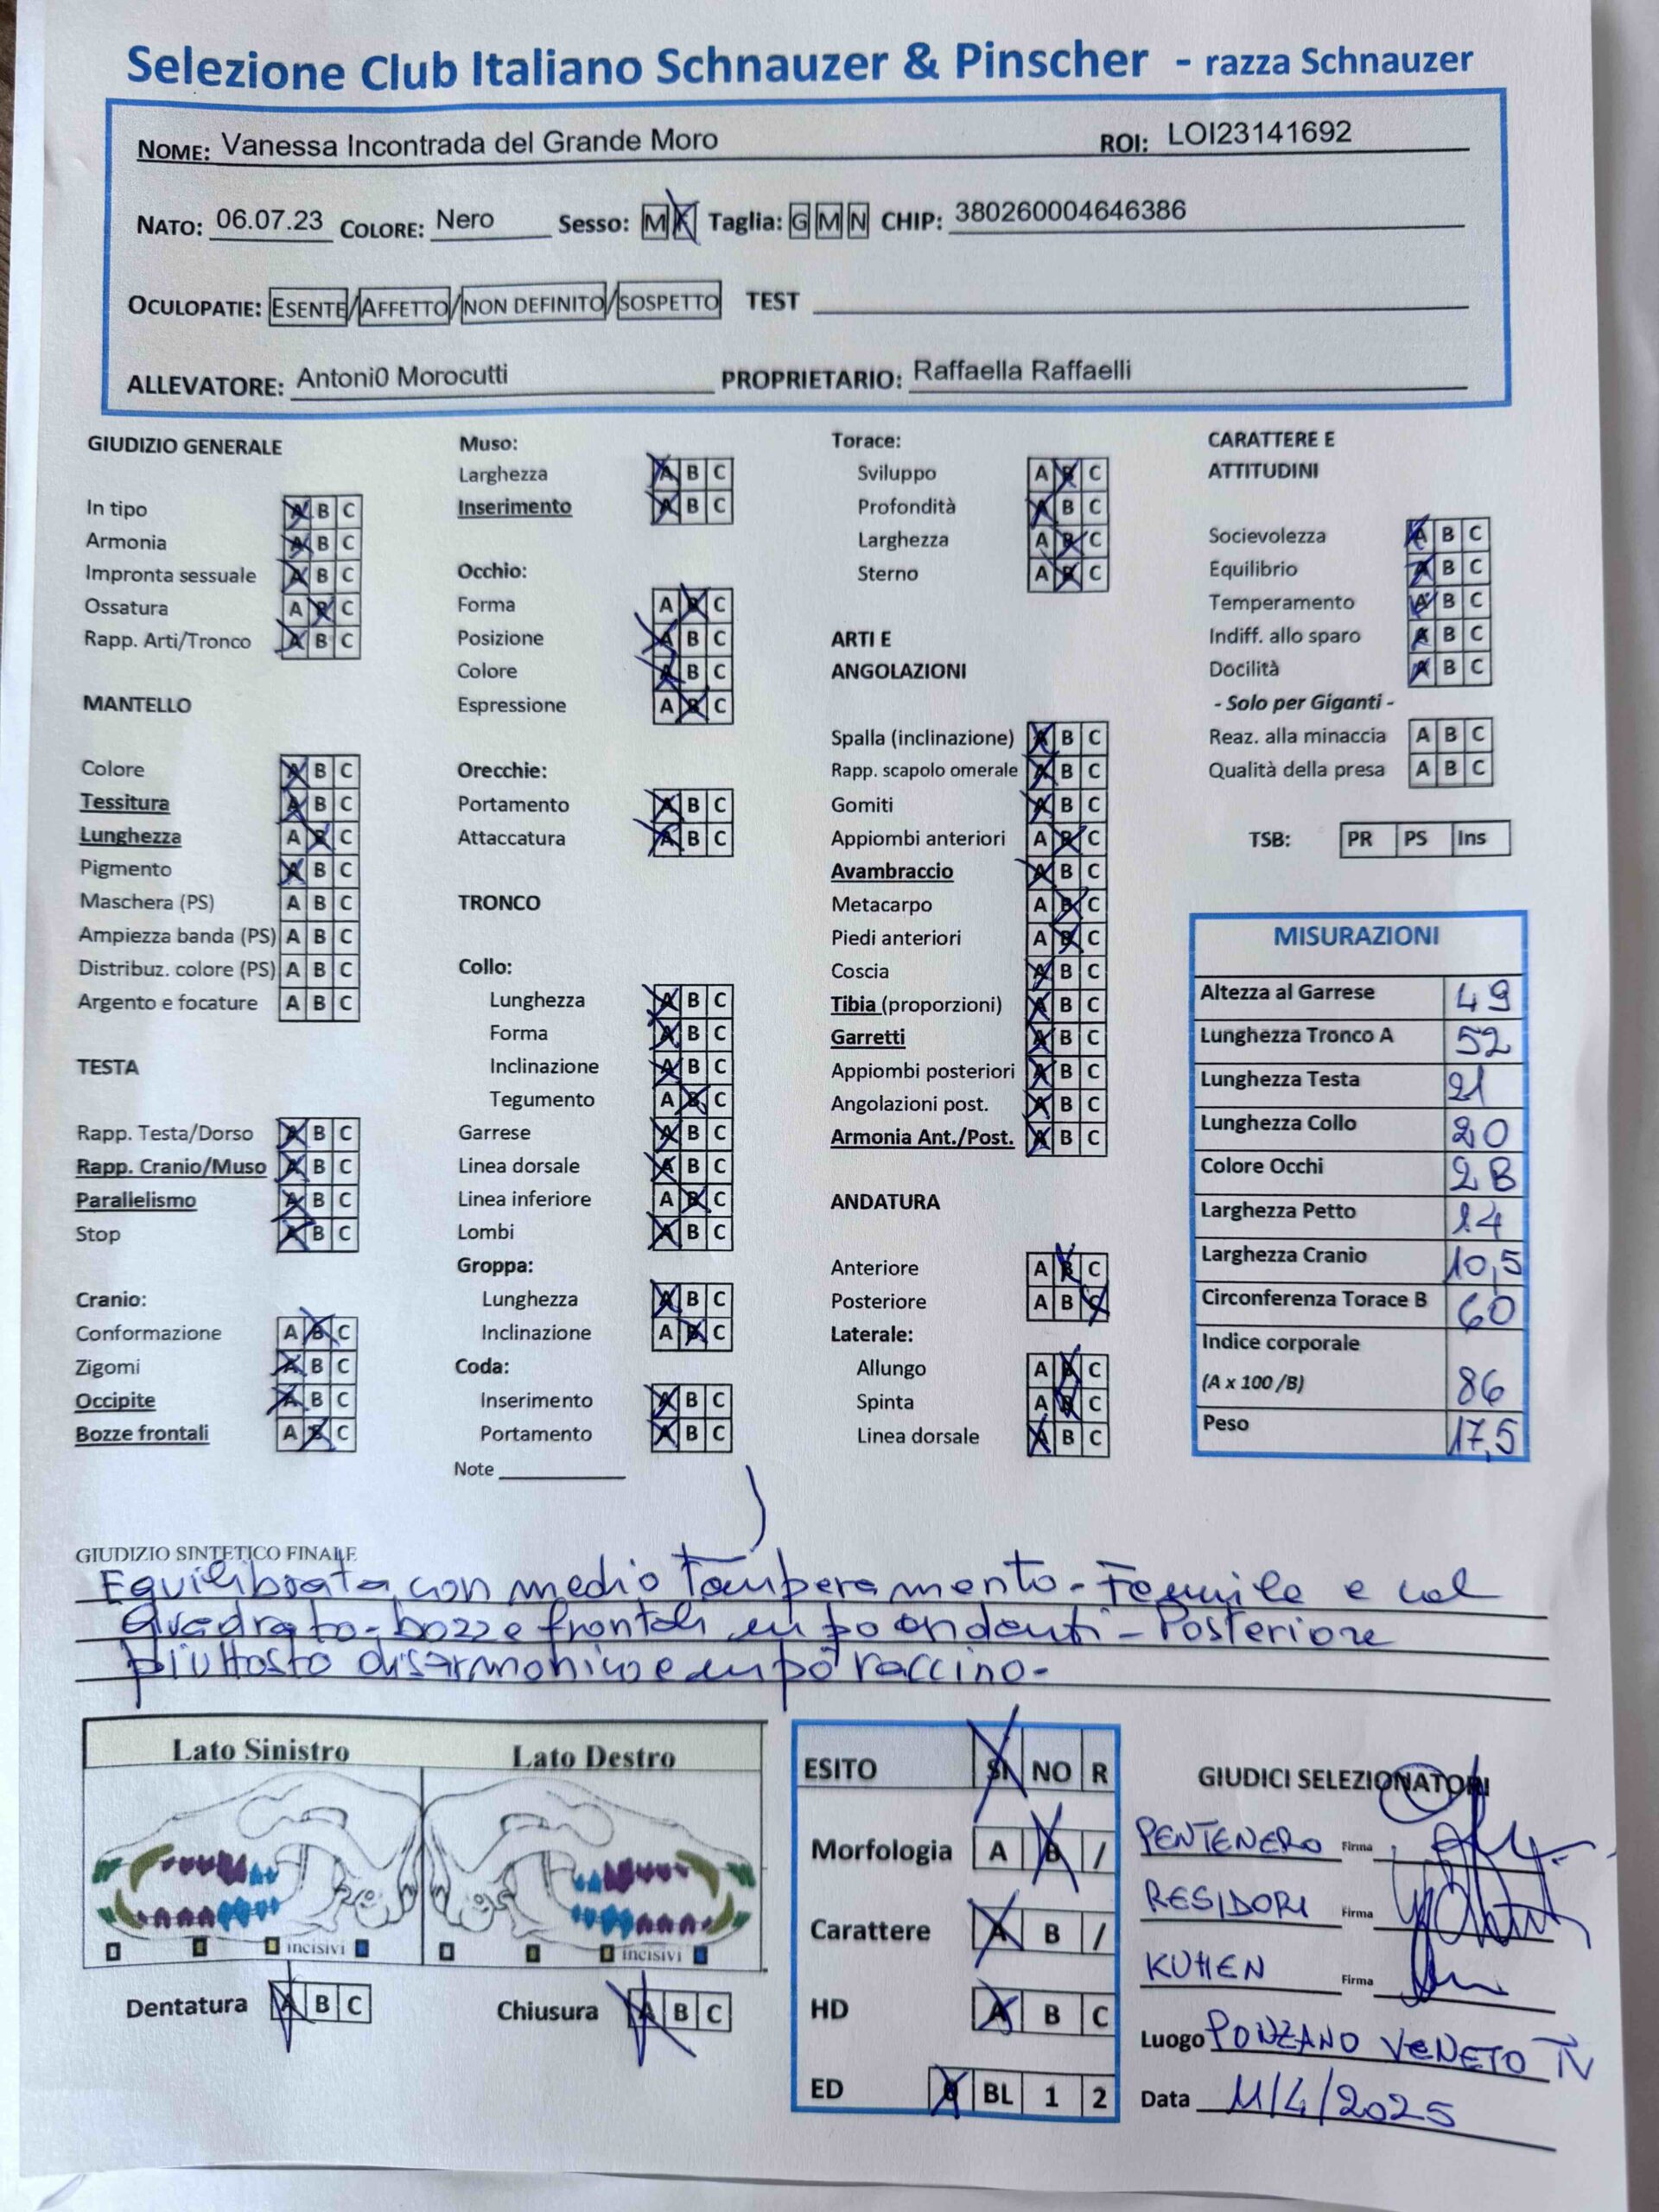 Selezione Club Italiano Schnauzer & Pinscher - razza Schnauzer
NOME: Vanessa Incontrada del Grande Moro ROI: LOI23141692
NATO: 06.07.23 COLORE: Nero Sesso: M F Taglia: G M N CHIP: 380260004646386
OCULOPATIE: ESENTE/AFFETTO/NON DEFINITO/SOSPETTO TEST
ALLEVATORE: Antoni0 Morocutti PROPRIETARIO: Raffaella Raffaelli
GIUDIZIO GENERALE
In tipo A B C
Armonia A B C
Impronta sessuale A B C
Ossatura A B C
Rapp. Arti/Tronco A B C
MANTELLO
Colore A B C
Tessitura A B C
Lunghezza A B C
Pigmento A B C
Maschera (PS) A B C
Ampiezza banda (PS) A B C
Distribuz. colore (PS) A B C
Argento e focature A B C
TESTA
Rapp. Testa/Dorso A B C
Rapp. Cranio/Muso A B C
Parallelismo A B C
Stop A B C
Cranio:
Conformazione A B C
Zigomi A B C
Occipite A B C
Bozze frontali A B C
Muso:
Larghezza A B C
Inserimento A B C
Occhio:
Forma A B C
Posizione A B C
Colore A B C
Espressione A B C
Orecchie:
Portamento A B C
Attaccatura A B C
TRONCO
Collo:
Lunghezza A B C
Forma A B C
Inclinazione A B C
Tegumento A B C
Garrese A B C
Linea dorsale A B C
Linea inferiore A B C
Lombi A B C
Groppa:
Lunghezza A B C
Inclinazione A B C
Coda:
Inserimento A B C
Portamento A B C
Note
Torace:
Sviluppo A B C
Profondità A B C
Larghezza A B C
Sterno A B C
ARTI E
ANGOLAZIONI
Spalla (inclinazione) A B C
Rapp. scapolo omerale A B C
Gomiti A B C
Appiombi anteriori A B C
Avambraccio A B C
Metacarpo A B C
Piedi anteriori A B C
Coscia A B C
Tibia (proporzioni) A B C
Garretti A B C
Appiombi posteriori A B C
Angolazioni post. A B C
Armonia Ant./Post. A B C
ANDATURA
Anteriore A B C
Posteriore A B C
Laterale:
Allungo A B C
Spinta A B C
Linea dorsale A B C
CARATTERE E
ATTITUDINI
Socievolezza A B C
Equilibrio A B C
Temperamento A B C
Indiff. allo sparo A B C
Docilità A B C
- Solo per Giganti -
Reaz. alla minaccia A B C
Qualità della presa A B C
TSB: PR PS Ins
MISURAZIONI
Altezza al Garrese 49
Lunghezza Tronco A 52
Lunghezza Testa 21
Lunghezza Collo 20
Colore Occhi 2B
Larghezza Petto 14
Larghezza Cranio 10,5
Circonferenza Torace B 60
Indice corporale
(A x 100 /B) 86
Peso 17,5
GIUDIZIO SINTETICO FINALE
Equilibrata, con medio Temperamento - Femminile e
quadrato - bozze frontali un po - Posteriore
piuttosto disarmonico e un pò vaccino -
Lato Sinistro Lato Destro
incisivi incisivi
Dentatura A B C Chiusura A B C
ESITO SI NO R
Morfologia A B /
Carattere A B /
HD A B C
ED 0 BL 1 2
GIUDICI SELEZIONATORI
PENTENERO Firma
RESIDORI Firma
KUHEN Firma
Luogo PONZANO VENETO TV
Data 11/4/2025